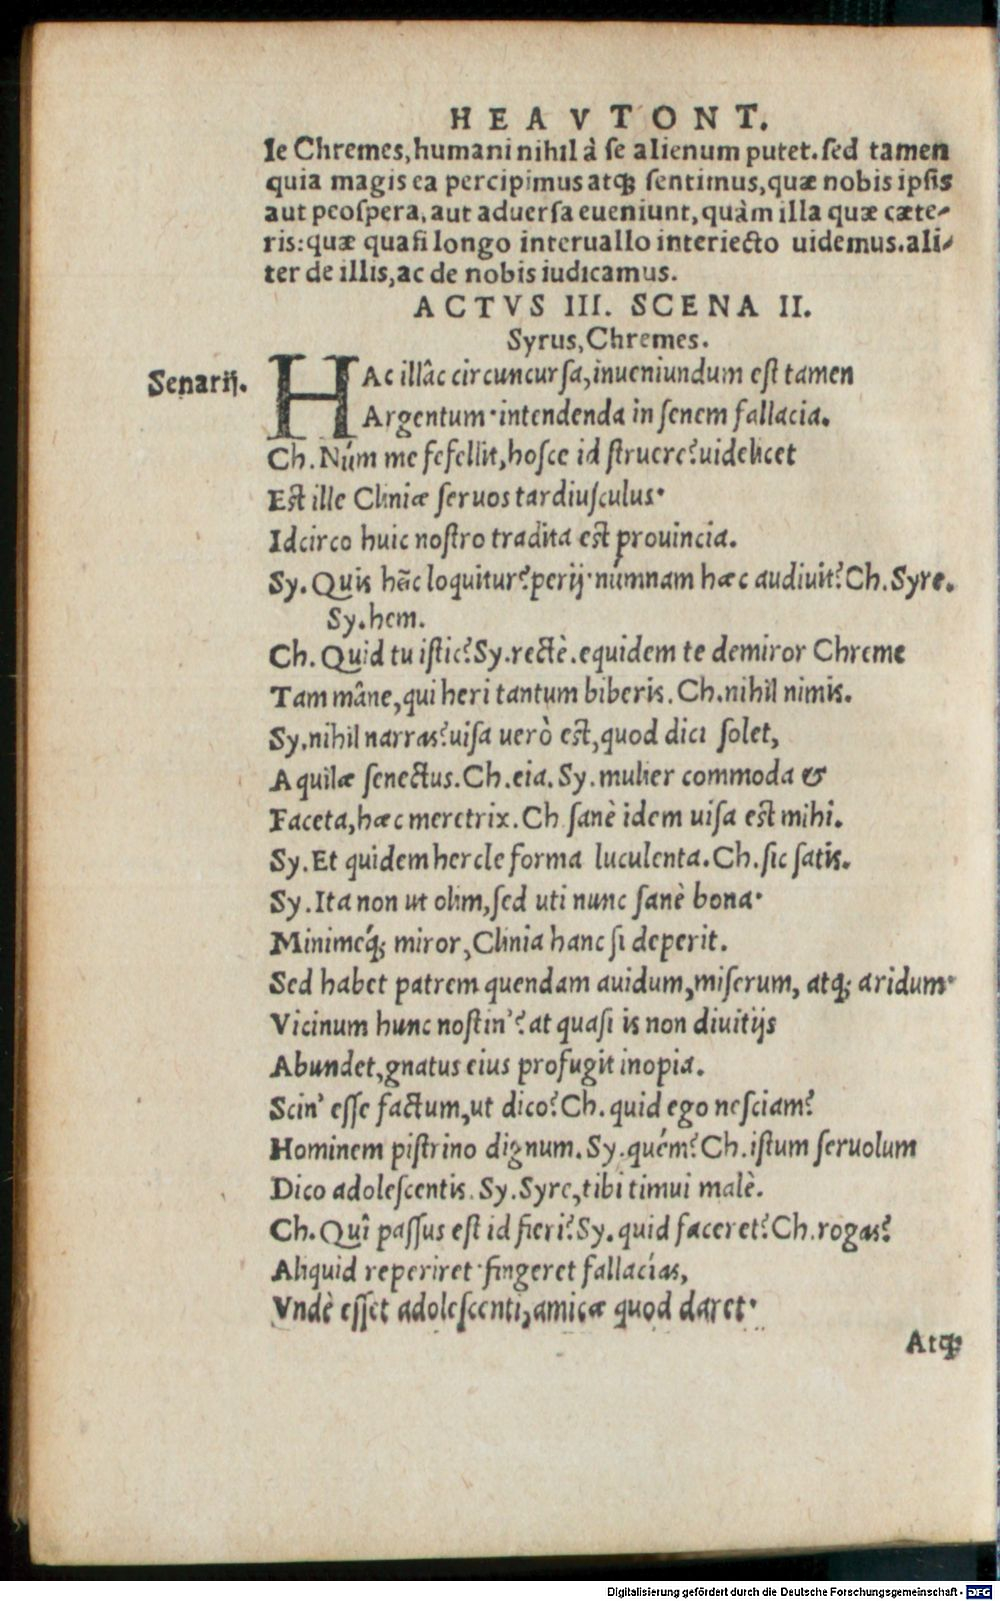 HEAVTONT.
Ie Chremes, humani nihil à se alienum putet. sed tamen
quia magis ea percipimus atq; sentimus, quæ nobis ipsis
aut peospera, aut aduersa eueniunt, quàm illa quæ cæte-
ris: quæ quasi longo interuallo interiecto uidemus. ali-
ter de illis, ac de nobis iudicamus.
ACTVS III. SCENA II.
Syrus, Chremes.
Senarij.
HAc illâc circuncursa, inueniundum est tamen
Argentum· intendenda in senem fallacia.
Ch. Núm me fefellit, hosce id struere? uidelicet
Est ille Cliniæ seruos tardiusculus·
Idcirco huic nostro tradita est prouincia.
Sy. Quis hĩc loquitur? perij· númnam hæc audiuit? Ch. Syre.
Sy. hem.
Ch. Quid tu istic? Sy. rectè. equidem te demiror Chreme
Tam mâne, qui heri tantum biberis. Ch. nihil nimis.
Sy. nihil narras? uisa uerò est, quod dici solet,
Aquilæ senectus. Ch. eia. Sy. mulier commoda &
Faceta, hæc meretrix. Ch sanè idem uisa est mihi.
Sy. Et quidem hercle forma luculenta. Ch. sic satis.
Sy. Ita non ut olim, sed uti nunc sanè bona·
Minimeq́; miror, Clinia hanc si deperit.
Sed habet patrem quendam auidum, miserum, atq; aridum·
Vicinum hunc nostin'? at quasi is non diuitijs
Abundet, gnatus eius profugit inopia.
Scin' esse factum, ut dico? Ch. quid ego nesciam?
Hominem pistrino dignum. Sy. quém? Ch. istum seruolum
Dico adolescentis. Sy. Syre, tibi timui malè.
Ch. Quî passus est id fieri? Sy. quid faceret? Ch. rogas?
Aliquid reperiret· fingeret fallacías,
Vndè esset adolescenti, amicæ quod daret·
Atq;
Digitalisierung gefördert durch die Deutsche Forschungsgemeinschaft - DFG